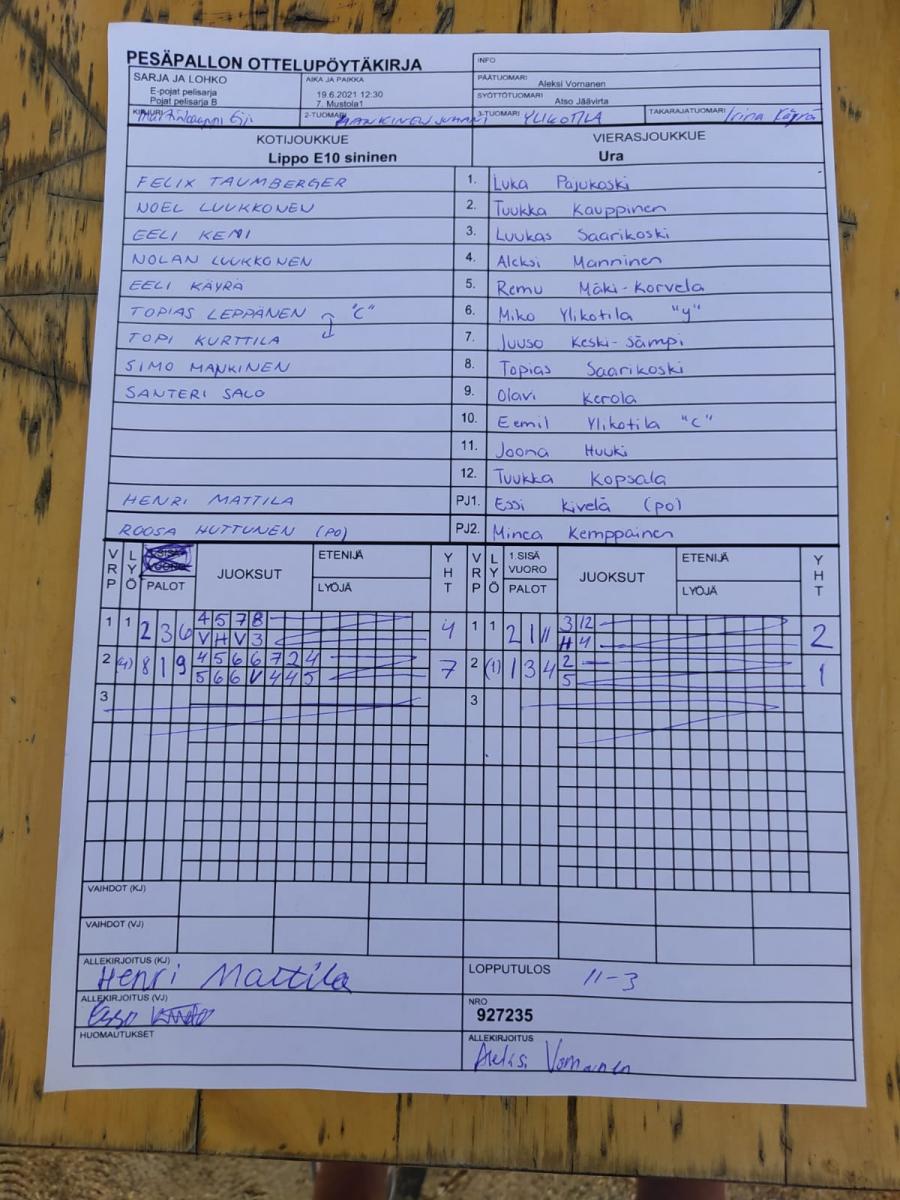 PESÄPALLON OTTELUPÖYTÄKIRJA
INFO
SARJA JA LOHKO
E-pojat pelisarja
Pojat pelisarja B
AIKA JA PAIKKA
19.6.2021 12:30
7. Mustola1
PÄÄTUOMARI Aleksi Vornanen
SYÖTTÖTUOMARI Atso Jäävirta
KIRJURI
2-TUOMARI MANKINEN JUHANI
3-TUOMARI YLIKOTILA
TAKARAJATUOMARI Irina Käyrä
KOTIJOUKKUE VIERASJOUKKUE
Lippo E10 sininen Ura
FELIX TAUMBERGER 1. Luka Pajukoski
NOEL LUUKKONEN 2. Tuukka Kauppinen
EELI KEMI 3. Luukas Saarikoski
NOLAN LUUKKONEN 4. Aleksi Manninen
EELI KÄYRÄ 5. Remu Mäki-Korvela
TOPIAS LEPPÄNEN "C" 6. Miko Ylikotila "y"
TOPI KURTTILA 7. Juuso Keski-Sämpi
SIMO MANKINEN 8. Topias Saarikoski
SANTERI SALO 9. Olavi Kerola
10. Eemil Ylikotila "C"
11. Joona Huuki
12. Tuukka Kopsala
HENRI MATTILA PJ1. Essi Kivelä (po)
ROOSA HUTTUNEN (PO) PJ2. Minea Kemppainen
VRP LYÖ PALOT JUOKSUT ETENIJÄ LYÖJÄ YHT VRP LYÖ 1.SISÄ VUORO PALOT JUOKSUT ETENIJÄ LYÖJÄ YHT
1 1 2 3 6 4 5 7 8 4 1 1 2 1 11 3 12 2
V H V 3 H 4
2 (4) 8 1 9 4 5 6 6 7 2 4 7 2 (1) 1 3 4 2 1
5 6 6 V 4 4 5 5
3 3
VAIHDOT (KJ)
VAIHDOT (VJ)
ALLEKIRJOITUS (KJ) Henri Mattila
LOPPUTULOS 11-3
ALLEKIRJOITUS (VJ)
NRO
927235
HUOMAUTUKSET
ALLEKIRJOITUS
Aleksi Vornanen